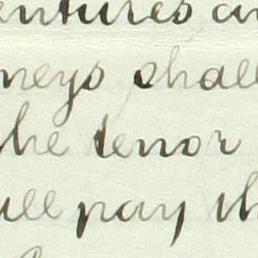 entures an
neys shall
the tenor
ill pay th